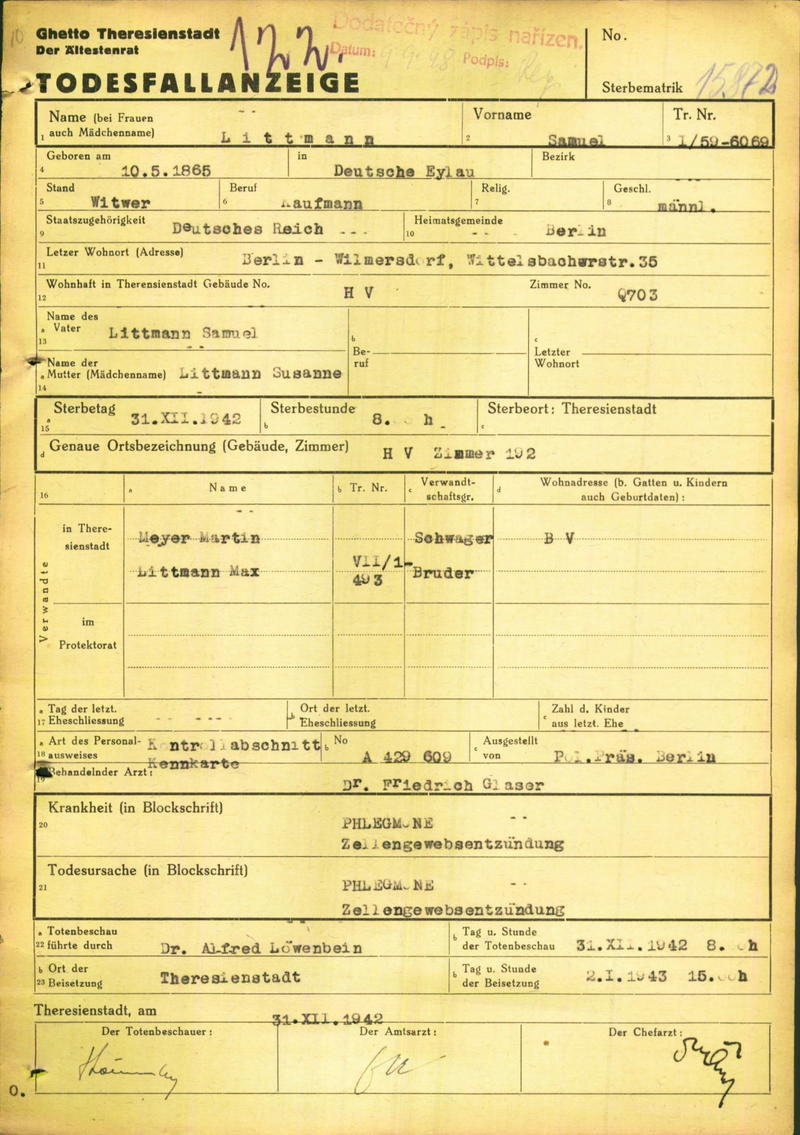 Ghetto Theresienstadt
Der Ältestenrat
122.
Dodatečný zápis nařízen.
Datum: 9.9.48 Podpis:
No.
TODESFALLANZEIGE
Sterbematrik 15.872
Name (bei Frauen auch Mädchenname) Littmann
Vorname Samuel
Tr. Nr. I/59-6069
Geboren am 10.5.1865 in Deutsche Eylau Bezirk
Stand Witwer Beruf Kaufmann Relig. Geschl. männl.
Staatszugehörigkeit Deutsches Reich --- Heimatsgemeinde -- Berlin
Letzer Wohnort (Adresse) Berlin - Wilmersdorf, Wittelsbacherstr.35
Wohnhaft in Theresienstadt Gebäude No. H V Zimmer No. Q703
Name des Vater Littmann Samuel
Beruf
Letzter Wohnort
Name der Mutter (Mädchenname) Littmann Susanne
Sterbetag 31.XII.1942 Sterbestunde 8. h Sterbeort: Theresienstadt
Genaue Ortsbezeichnung (Gebäude, Zimmer) H V Zimmer 192
16 a Name b Tr. Nr. c Verwandtschaftsgr. d Wohnadresse (b. Gatten u. Kindern auch Geburtdaten):
Verwandte
in Theresienstadt
Meyer Martin Schwager B V
Littmann Max VII/1-493 Bruder
im Protektorat
Tag der letzt. Eheschliessung -- --- Ort der letzt. Eheschliessung Zahl d. Kinder aus letzt. Ehe
Art des Personalausweises Kontrollabschnitt Kennkarte No A 429 609 Ausgestellt von Pol.Präs. Berlin
Behandelnder Arzt: Dr. Friedrich Glaser
Krankheit (in Blockschrift) PHLEGMONE
Zellengewebsentzündung
Todesursache (in Blockschrift) PHLEGMONE
Zellengewebsentzündung
Totenbeschau führte durch Dr. Alfred Löwenbein Tag u. Stunde der Totenbeschau 31.XII.1942 8. h
Ort der Beisetzung Theresienstadt Tag u. Stunde der Beisetzung 2.I.1943 15. h
Theresienstadt, am 31.XII.1942
Der Totenbeschauer: Der Amtsarzt: Der Chefarzt:
O.